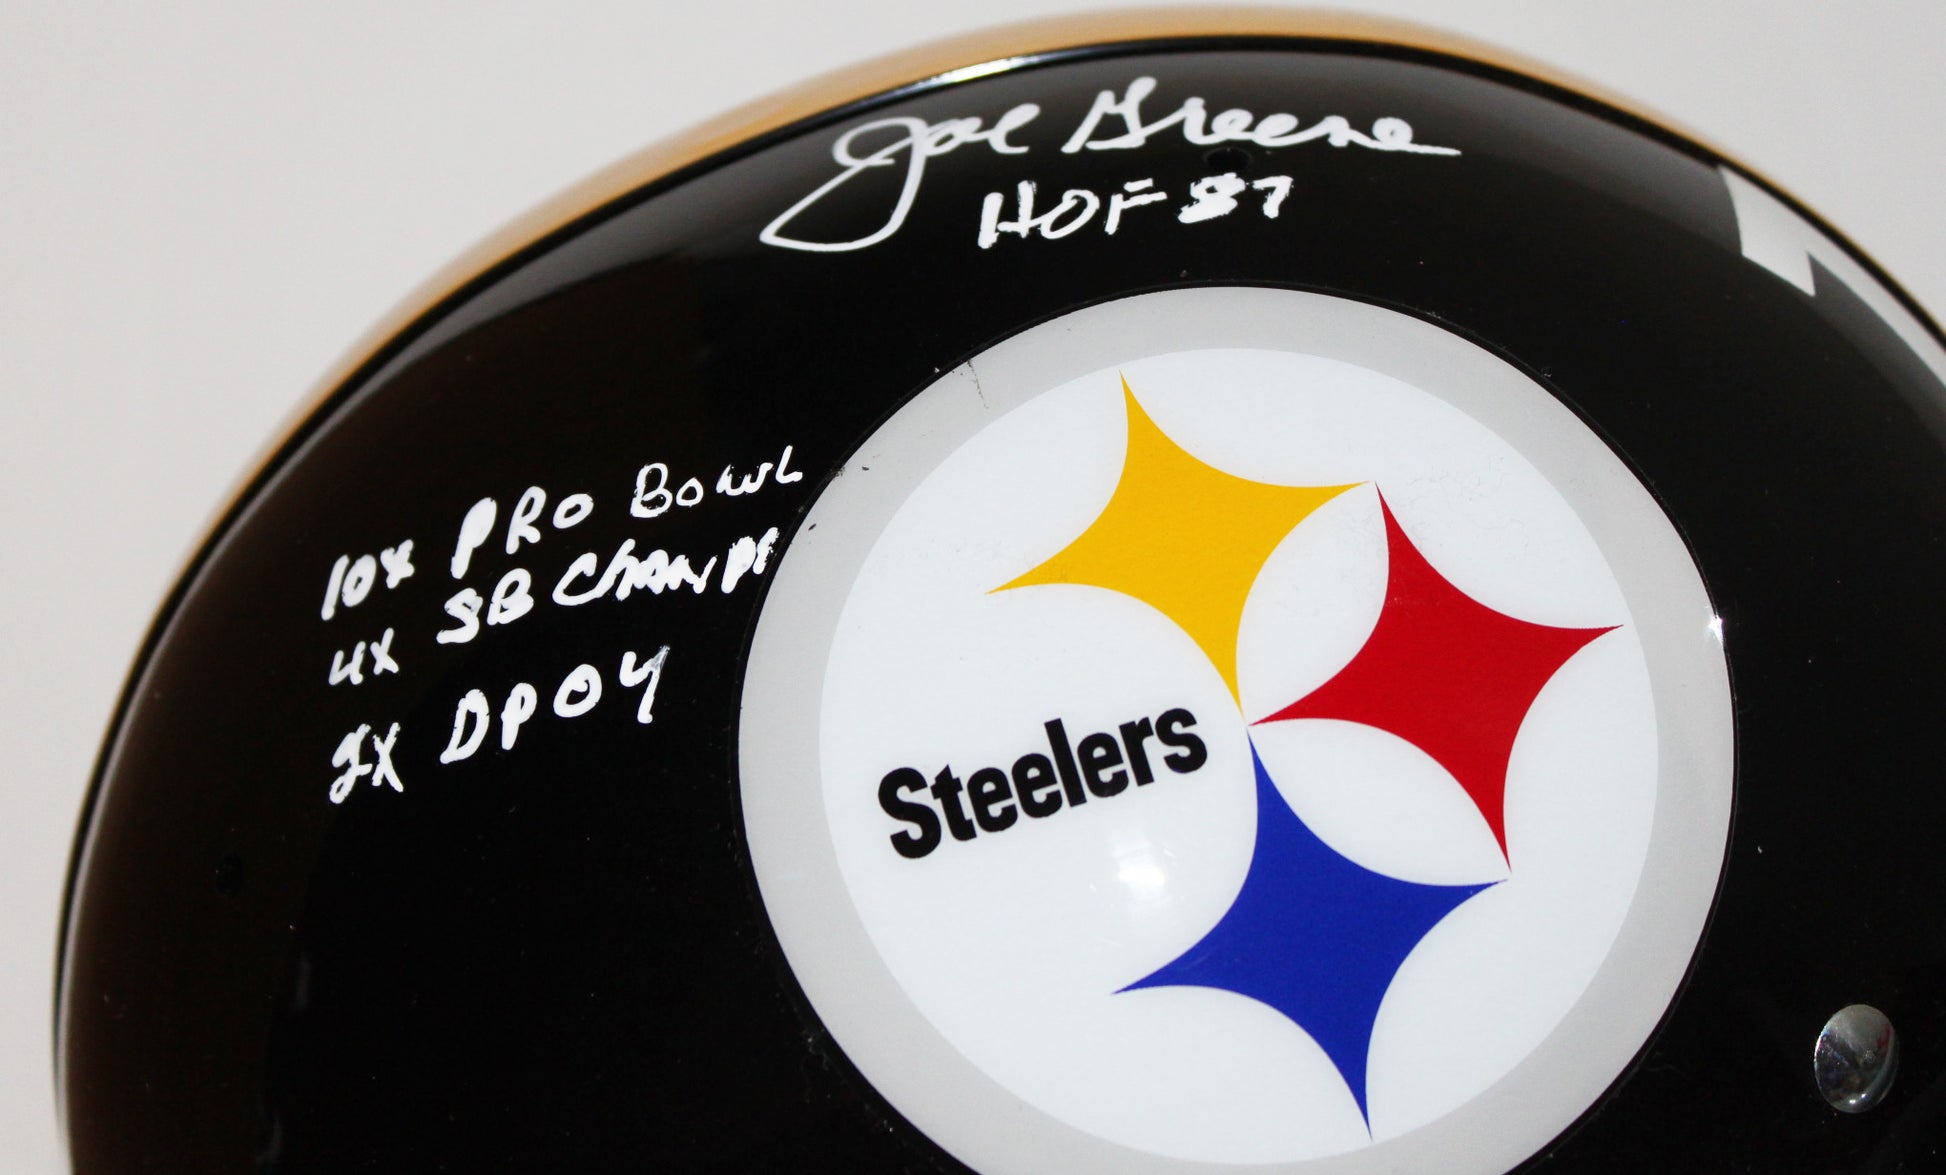 Joe Greene
HOF 87
10x PRO BOWL
4x SB CHAMPS
2X DPOY
Steelers